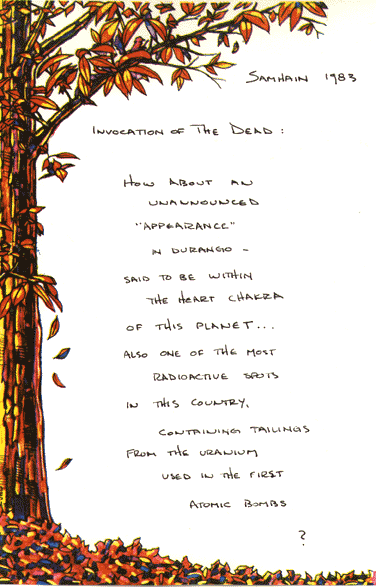 SAMHAIN 1983
INVOCATION OF THE DEAD :
HOW ABOUT AN
UNANNOUNCED
"APPEARANCE"
IN DURANGO –
SAID TO BE WITHIN
THE HEART CHAKRA
OF THIS PLANET...
ALSO ONE OF THE MOST
RADIOACTIVE SPOTS
IN THIS COUNTRY,
CONTAINING TAILINGS
FROM THE URANIUM
USED IN THE FIRST
ATOMIC BOMBS
?